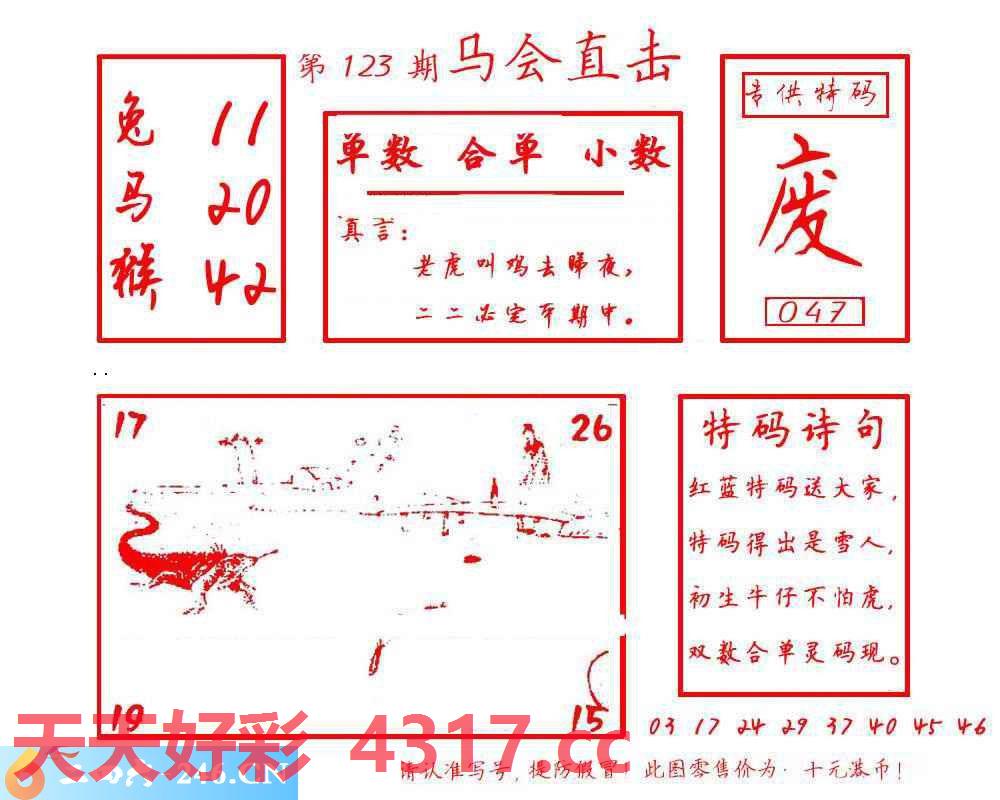 第 123 期 马会直击
兔 11
马 20
猴 42
单数 合单 小数
真言：
老虎叫鸡去睇夜，
二二必定本期中。
专供特码
废
047
17
26
19
15
特码诗句
红蓝特码送大家，
特码得出是雪人，
初生牛仔不怕虎，
双数合单灵码现。
03 17 24 29 37 40 45 46
天天好彩 4317.cc
246.CN
请认准写号，提防假冒！此图零售价为：十元港币！